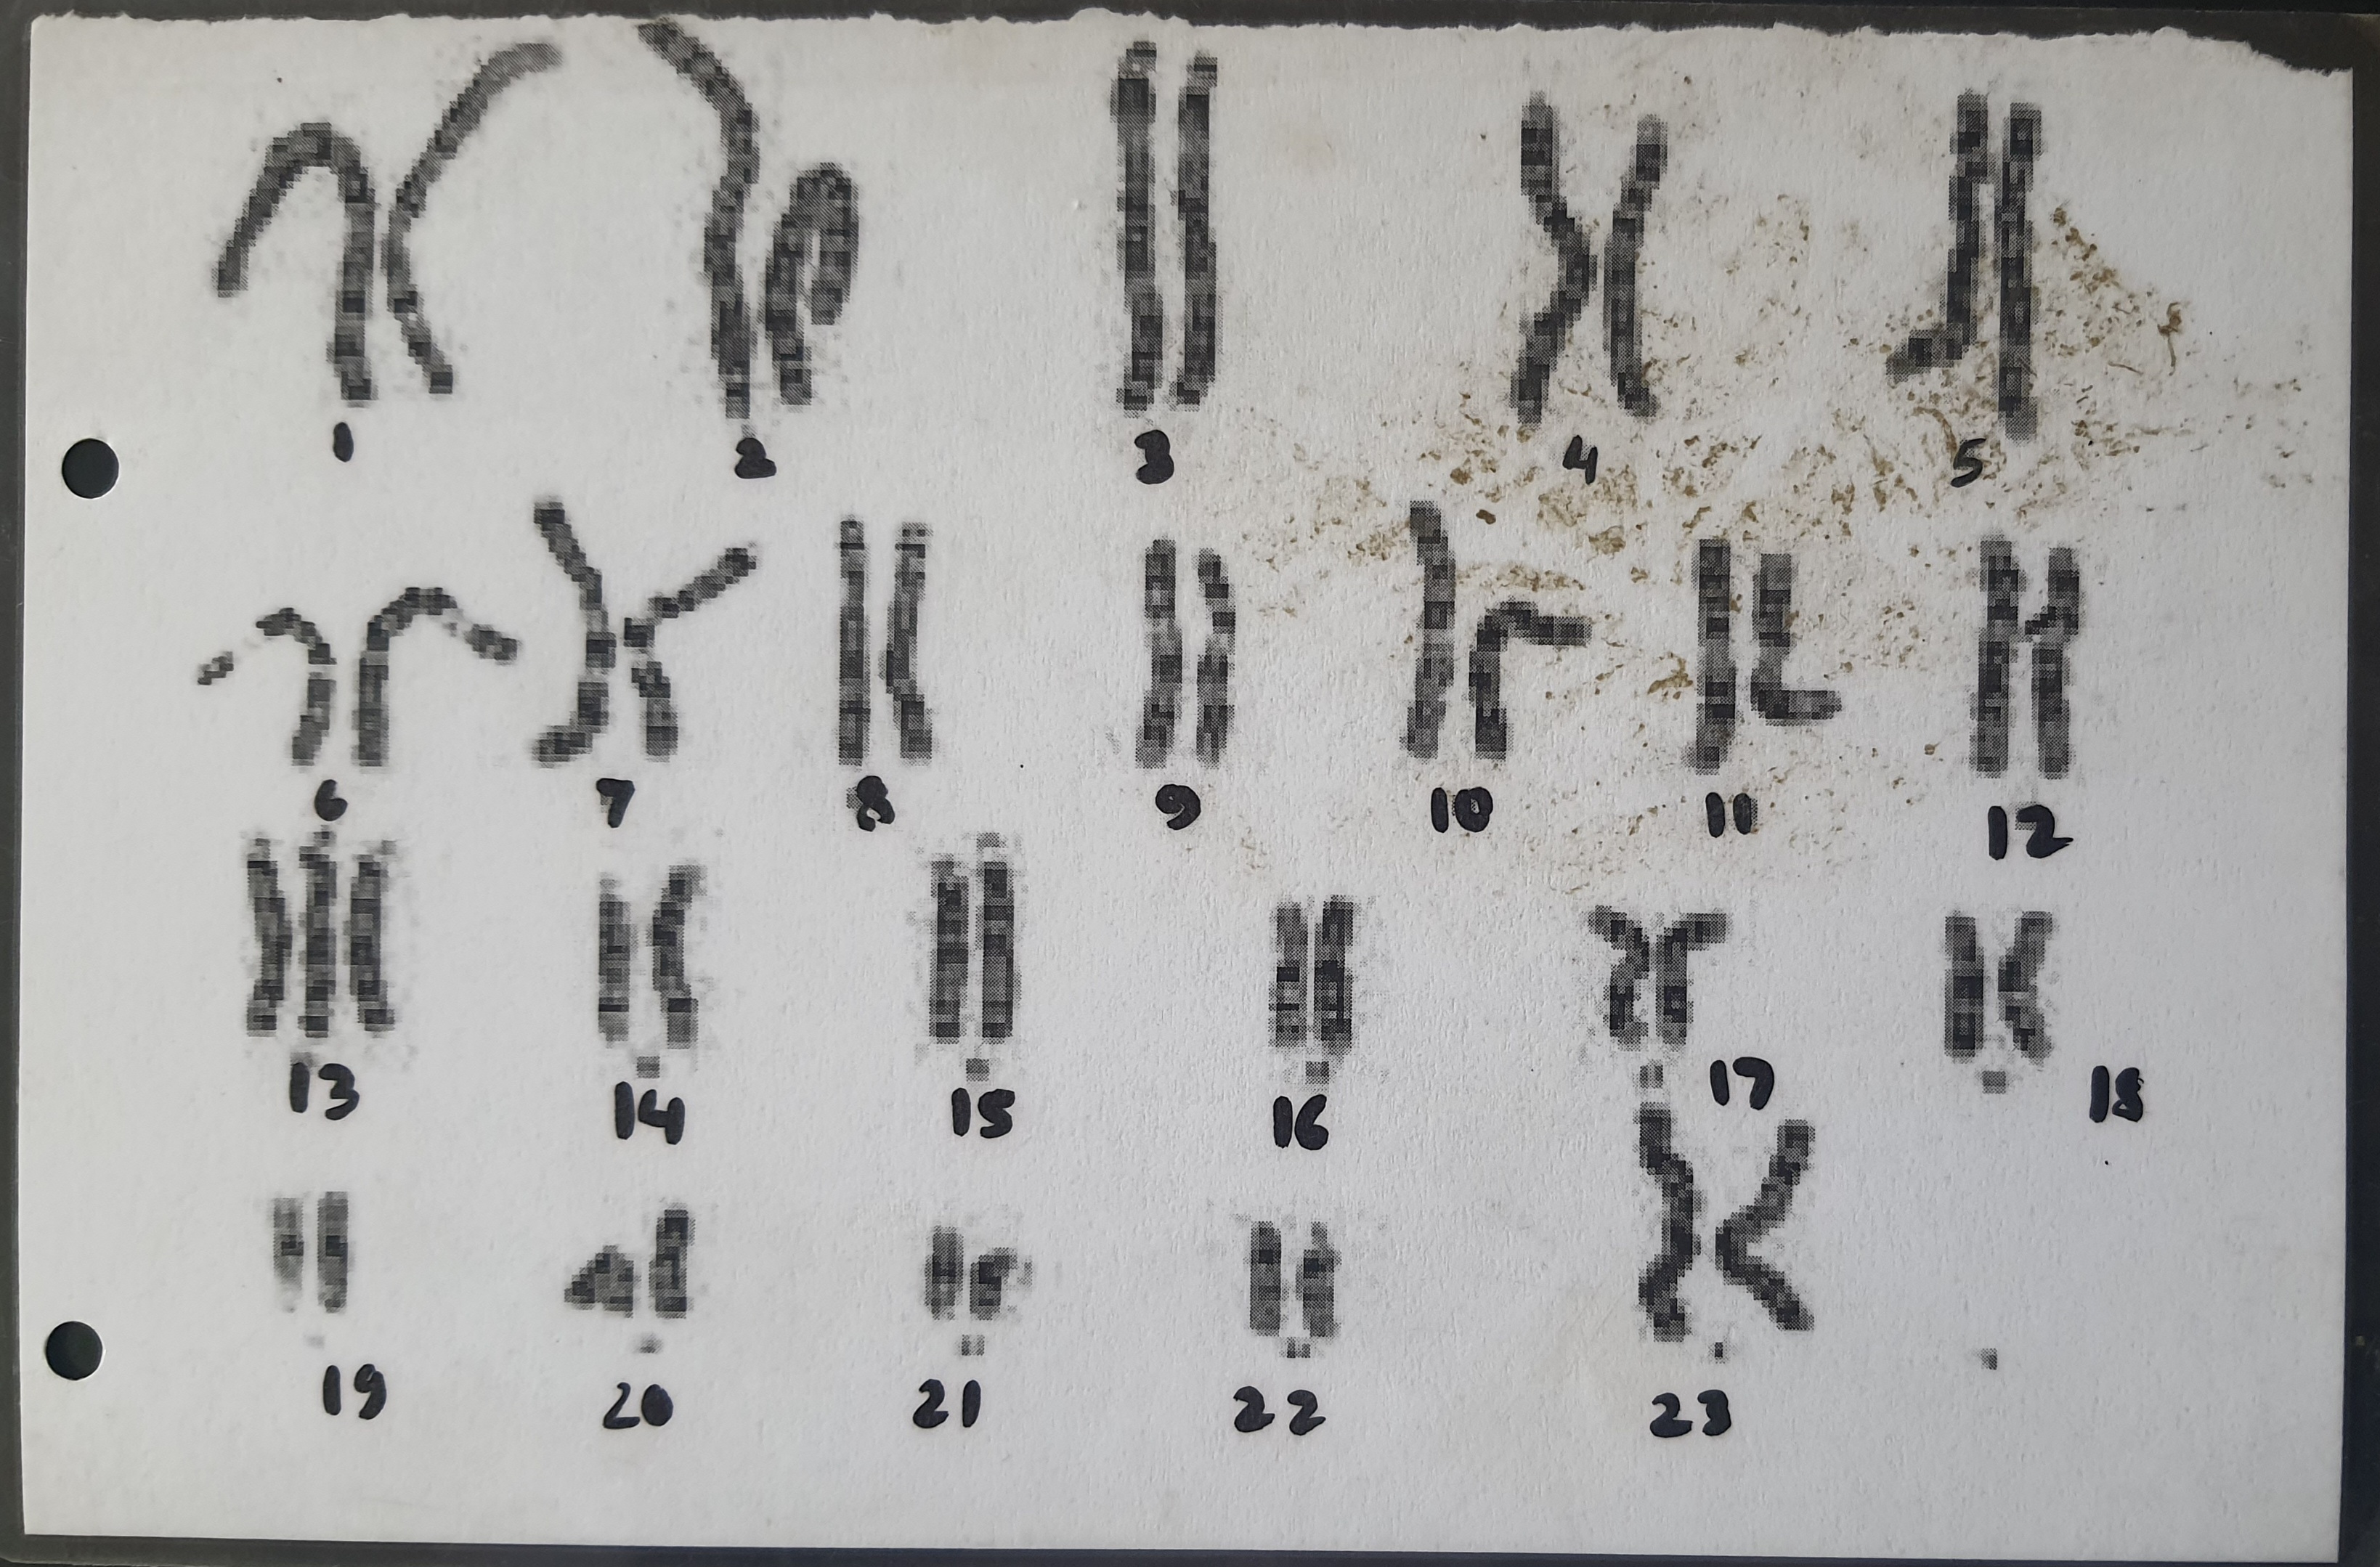 1 2 3 4 5
6 7 8 9 10 11 12
13 14 15 16 17 18
19 20 21 22 23